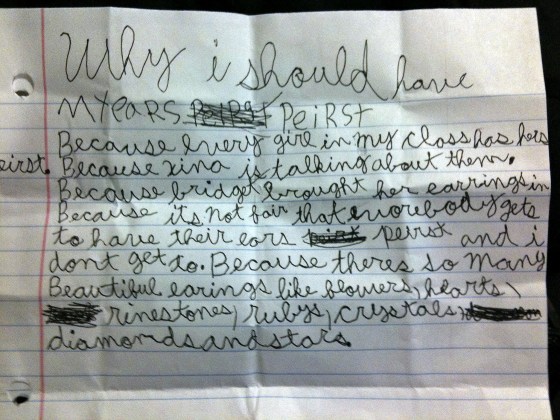 Why i should have
MYEARS PEiRST
Because every girl in my class has hers
eirst. Because xina is talking about them.
Because bridget brought her earrings in
Because its not fair that evorebody gets
to have their ears peirst and i
dont get to. Because theres so many
Beautiful earings like flowers, hearts,
rinestones, rubys, crystals,
diamonds and stars.